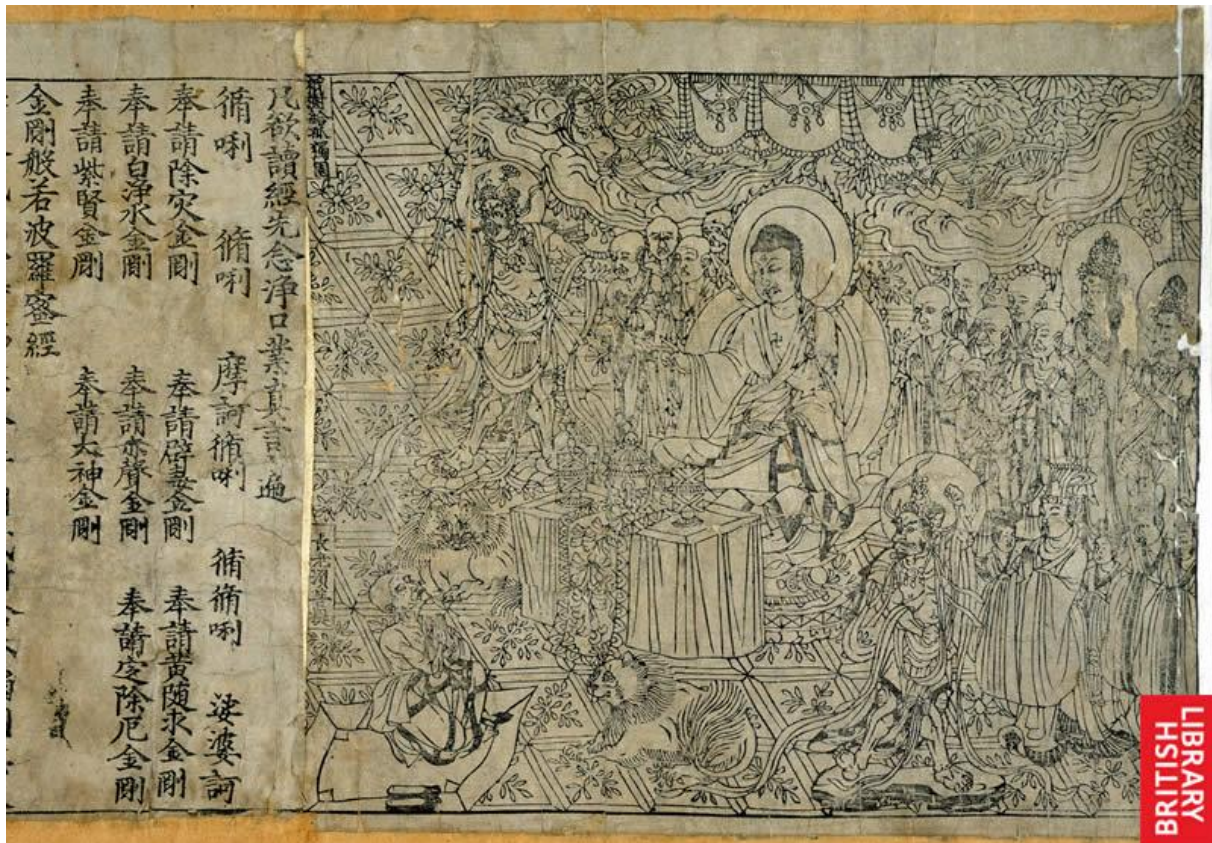 祇樹給孤獨園
長老須菩提
凡欲讀經先念淨口業真言遍
脩唎 脩唎 摩訶脩唎 脩脩唎 娑婆訶
奉請除灾金剛 奉請辟毒金剛 奉請黃随求金剛
奉請白淨水金剛 奉請赤聲金剛 奉請定除厄金剛
奉請紫賢金剛 奉請大神金剛
金剛般若波羅蜜經
BRITISH
LIBRARY